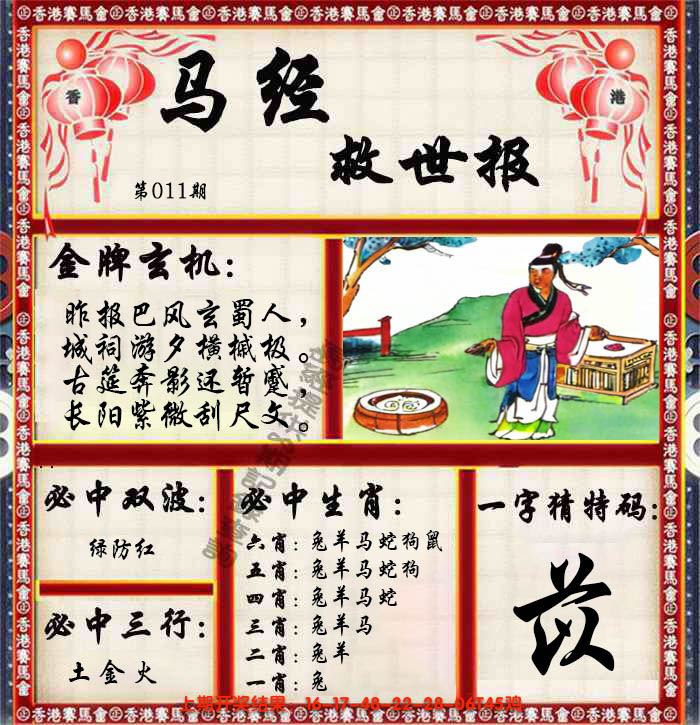 香港賽馬會 香港賽馬會 香港賽馬會 香港賽馬會 香港賽馬會 香港賽馬會 香港賽馬會
香
港
马经
救世报
第011期
金牌玄机：
昨报巴风玄蜀人，
城祠游夕横槭极。
古莚奔影还暂蹙，
长阳紫微刮尺文。
必中双波：
绿防红
必中三行：
土金火
必中生肖：
六肖：兔羊马蛇狗鼠
五肖：兔羊马蛇狗
四肖：兔羊马蛇
三肖：兔羊马
二肖：兔羊
一肖：兔
一字猜特码：
苡
上期开奖结果：16-17-48-22-28-06T45鸡